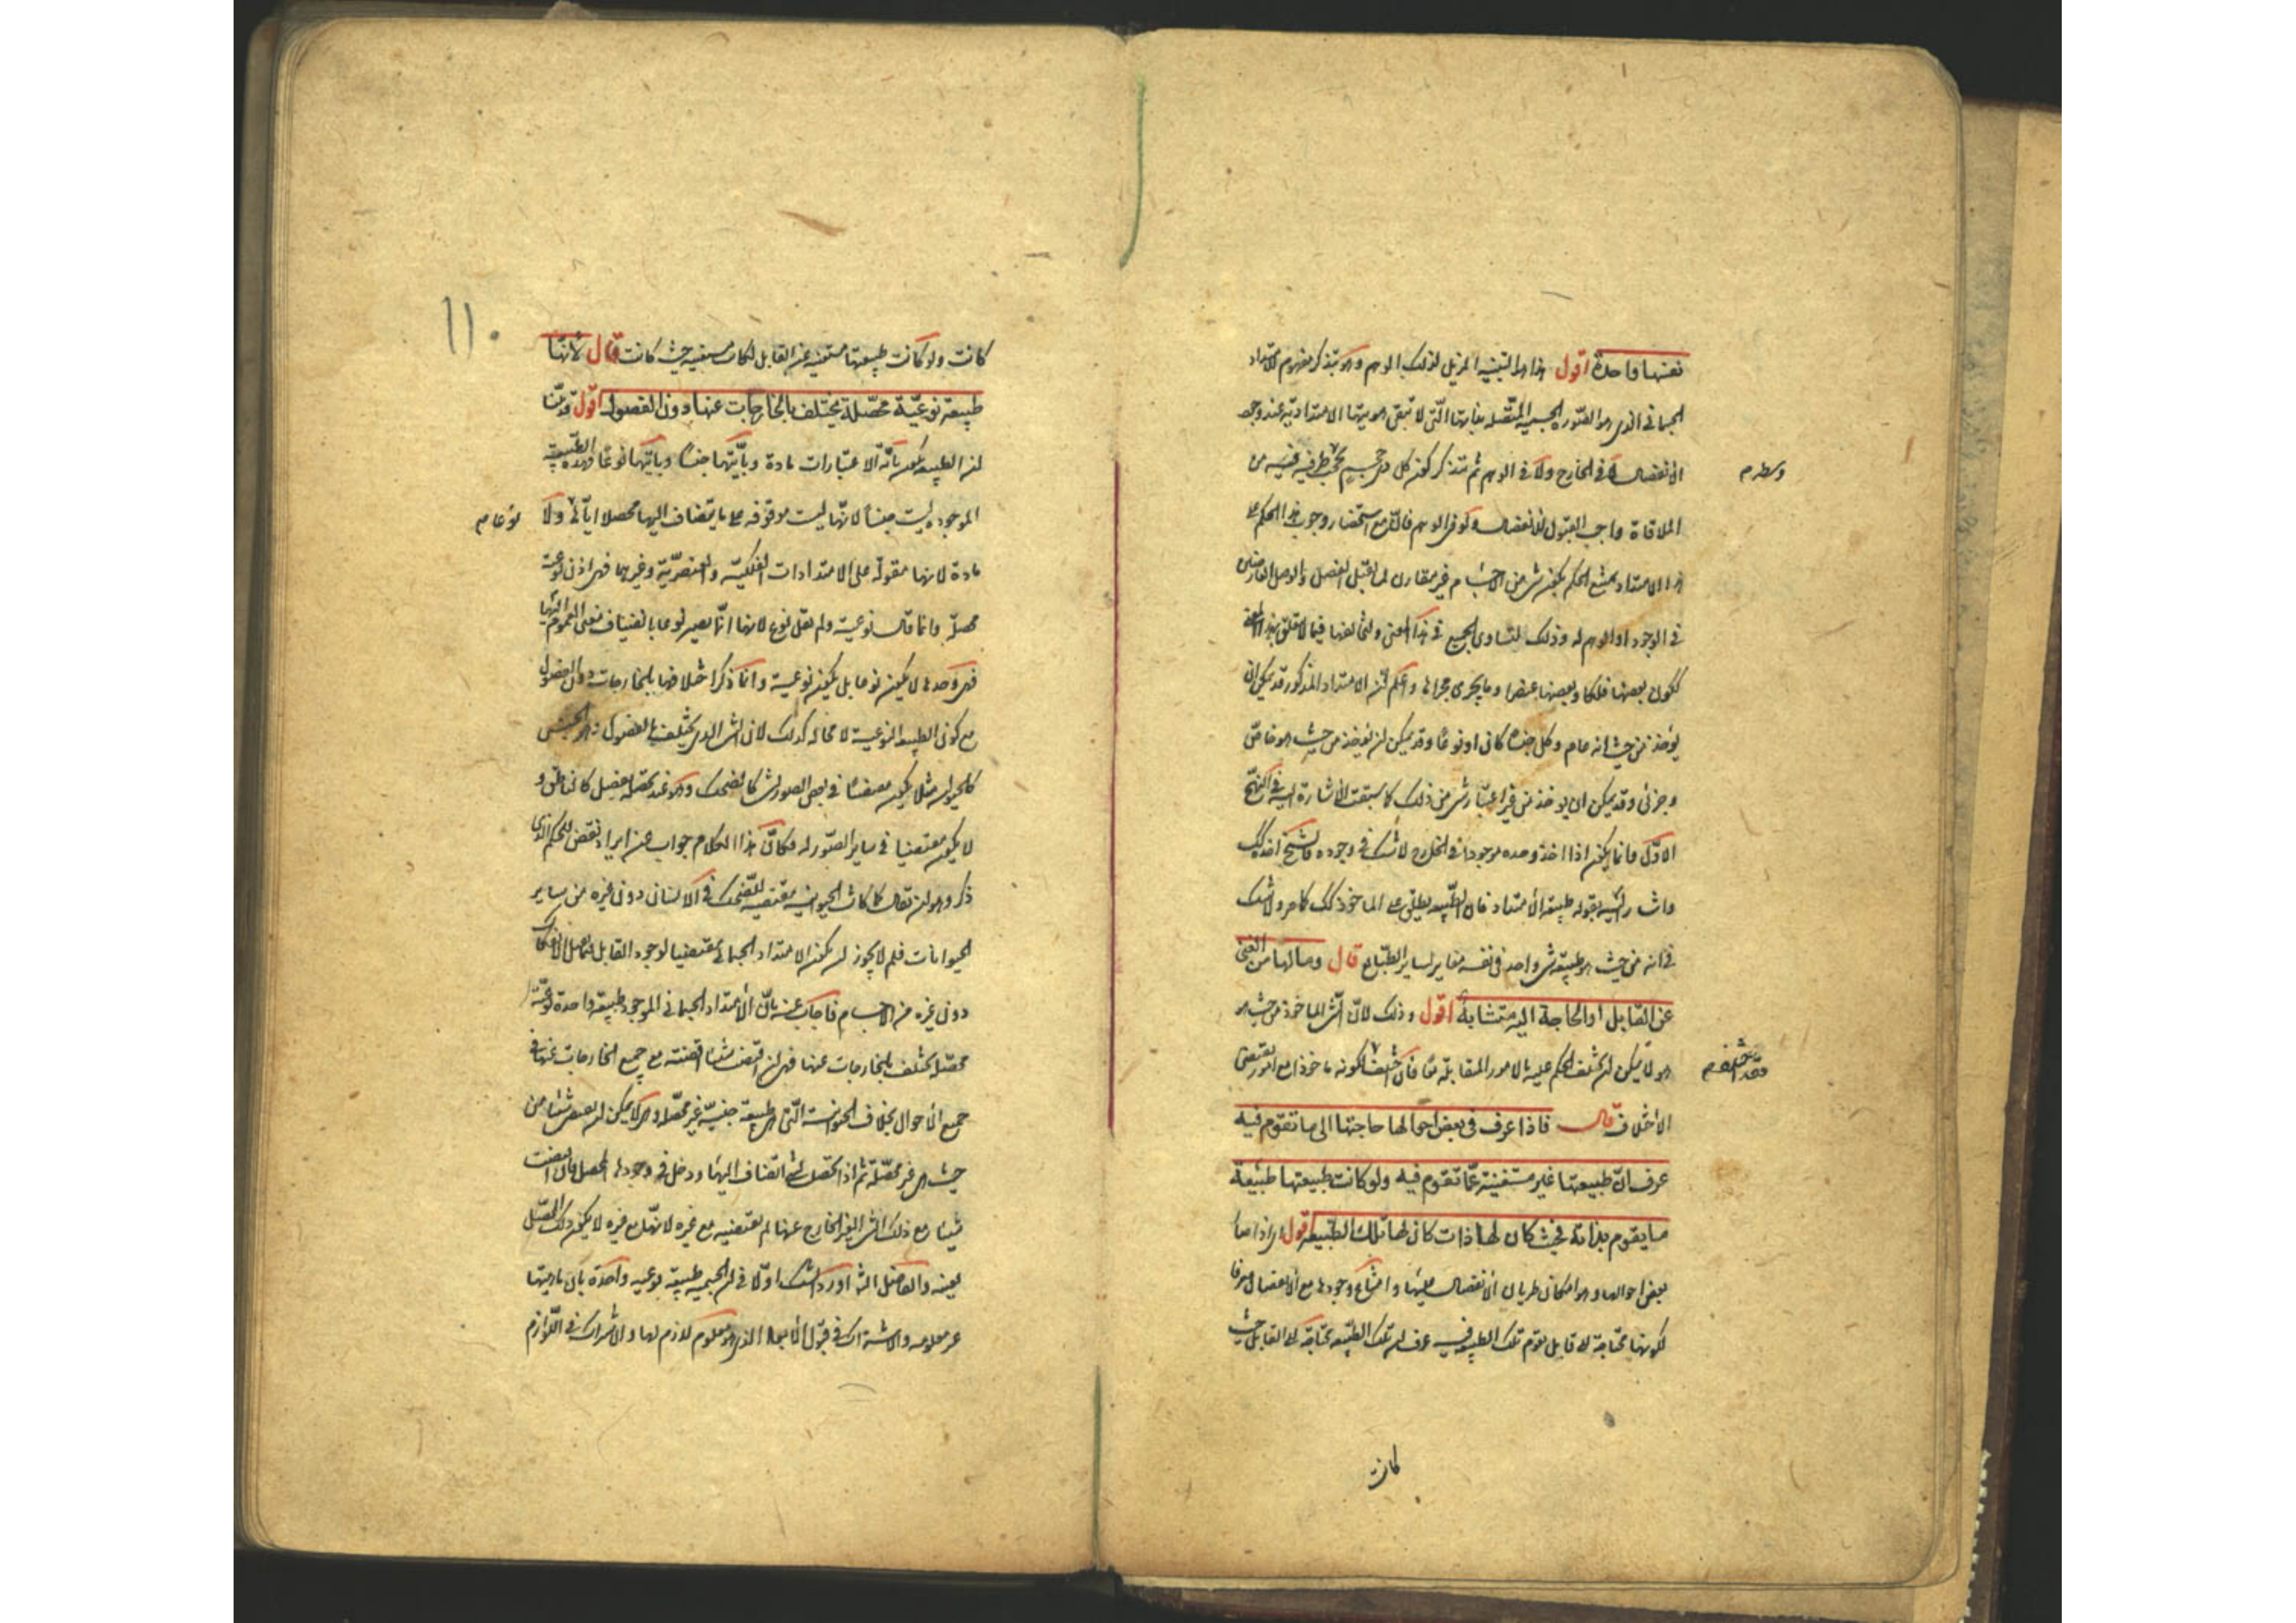 نفسها واحدة اقول هذا هو التنبيه المزيل لذلك الوهم وهو بتذكر مفهوم الامتداد
الجسمانى الذى هو الصورة الجسمية المتصلة بذاتها التى لا تبقى هويتها الامتدادية عند وجود
الانفصال لا فى الخارج ولا فى الوهم ثم تتذكر كون كل جسم يحجب طرفيه من
الملاقاة واجب القبول للانفصال ولو فى الوهم فانك مع استحضار وجوب هذا الحكم على
هذا الامتداد يمتنع الحكم بكون شىء من الاجسام غير مقارن لما يقبل الفصل والوصل العارضين
فى الوجود او الوهم له وذلك لتساوى الجميع فى هذا المعنى وتخالفها فيما لا يتعلق بهذا المعنى
ككون بعضها فلكا وبعضها عنصرا وما يجرى مجراها واعلم ان الامتداد المذكور قد يمكن ان
يؤخذ من حيث انه عام وكلى جنسا كان او نوعا وقد يمكن ان يؤخذ من حيث هو خاص
وجزئى وقد يمكن ان يوخذ من غير اعتبار شىء من ذلك كما سبقت الاشارة اليه فى النهج
الاول وانما يكون اذا اخذ وحده موجودا فى الخارج لا شك فى وجوده فالشيخ اخذه كذلك
واشار اليه بقوله طبيعة الامتداد فان الطبيعة يطلق على الماخوذ كذلك كما مر ولا شك
فى انه من حيث هو طبيعة شىء واحد فى نفسه مغاير لساير الطبايع قال ومالها من الغنى
عن القابل او الحاجة اليه متشابه اقول وذلك لان الشىء الماخوذ من حيث هو
هو لا يمكن ان يختلف الحكم عليه بالامور المتقابلة فان اختلف لكونه ماخوذا مع امور يقتضى
الاختلاف قال فاذا عرف فى بعض احوالها حاجتها الى ما تقوم فيه
عرف ان طبيعتها غير مستغنية عما تقوم فيه ولو كانت طبيعتها طبيعة
ما يقوم بذاته فحيث كان لها ذات كان لها تلك الطبيعة اقول اى اذا صار
بعض احوالها وهو امكان طريان الانفصال عليها وامتناع وجودها مع الانفصال معرفا
لكونها محتاجة الى قابل يقوم تلك الطبيعة فيه عرف ان تلك الطبيعة محتاجة الى القابل حيث
كانت
١١٠
كانت ولو كانت طبيعتها مستغنية عن القابل لكانت مستغنية حيث كانت قال لانها
طبيعة نوعية محصلة يختلف بالخارجات عنها دون الفصول اقول قد بينا
ان الطبيعة تكون باى الاعتبارات مادة وبايها جنسا وبايها نوعا فهذه الطبيعة
الموجودة ليست جنسا لانها ليست موقوفة على ما يتضاف اليها محصلا اياها ولا
مادة لانها مقولة على الامتدادات الفلكية والعنصرية وغيرهما فهى اذن نوعية
محصلة وانما قال نوعية ولم يقل نوع لانها انما يصير نوعا بانضياف معنى العموم اليها
فهى وحدها لا يكون نوعا بل يكون نوعية وانما ذكر اختلافها بالخارجات دون الفصول
مع كون الطبيعة النوعية لا محالة كذلك لان الشىء الذى يختلف بالفصول وهو الجنس
كالحيوان مثلا يكون مقتضيا فى بعض الصور لشىء كالضحك وهو عند تحصله بفصل كالناطق و
لا يكون مقتضيا فى ساير الصور له فكان هذا الكلام جواب عن ايراد نقض للحكم الذى
ذكر وهو ان يقال كما كانت الحيوانية مقتضية للضحك فى الانسان دون غيره من ساير
الحيوانات فلم لا يجوز ان يكون الامتداد الجسمانى مقتضيا لوجود القابل
دون غيره من الاجسام فاجاب عنه بان الامتداد الجسمانى الموجود طبيعة واحدة نوعية
محصلة يختلف بالخارجات عنها فهى ان اقتضت شيئا اقتضته مع جميع الخارجات عنها فى
جميع الاحوال بخلاف الحيوانية التى هى طبيعة جنسية غير محصلة وهى لا يمكن ان يقتضى شيئا من
حيث هى غير محصلة ثم اذا تحصلت بشىء انضاف اليها ودخل فى وجودها المحصل فان اقتضت
شيئا مع ذلك الشىء الغير الخارج عنها لم يقتضيه مع غيره لانها مع غيره لا يكون ذلك المحصل
بعينه والفاضل الشارح اورد الشك اولا فى ان الجسمية طبيعة نوعية واحدة بان ماهيتها
غير معلومة والاشتراك فى قبول الابعاد الذى هو معلوم لازم لها والاشتراك فى اللوازم